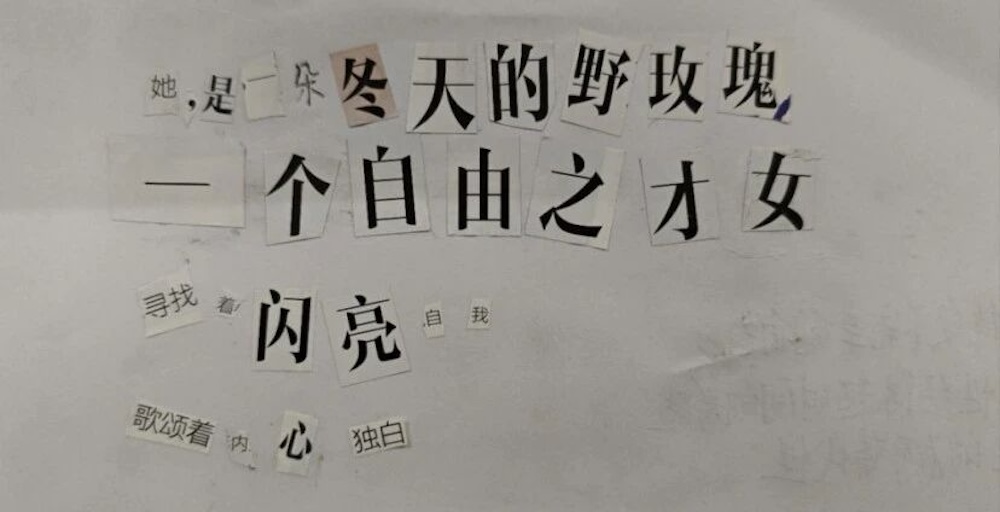 她,是一朵冬天的野玫瑰
一个自由之才女
寻找着闪亮自我
歌颂着内心独白